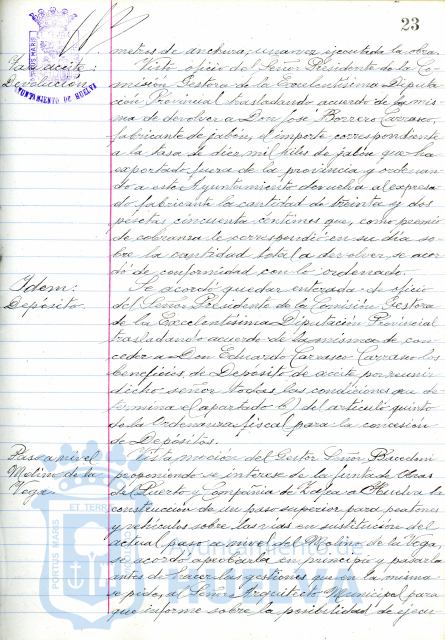 23
metros de anchura, una vez ejecutada la obra.
Tasa aceite:
Devolución
Visto oficio del Señor Presidente de la Co-
misión Gestora de la Excelentísima Diputa-
ción Provincial trasladando acuerdo de la mis-
ma de devolver a Don José Borrero Carrasco,
fabricante de jabón, el importe correspondiente
a la tasa de diez mil kilos de jabón que ha
exportado fuera de la provincia y ordenan-
do a este Ayuntamiento devuelva al expresa-
do fabricante la cantidad de treinta y dos
pesetas cincuenta céntimos que, como premio
de cobranza le correspondió en su día so-
bre la cantidad total a devolver, se acor-
dó de conformidad con lo ordenado.
Idem:
Depósito.
Se acordó quedar enterada de oficio
del Señor Presidente de la Comisión Gestora
de la Excelentísima Diputación Provincial
trasladando acuerdo de la misma de con-
ceder a Don Eduardo Carrasco Carrasco los
beneficios de Depósito de aceite por reunir
dicho señor todas las condiciones que de-
termina el apartado b) del artículo quinto
de la Ordenanza fiscal para la concesión
de Depósitos.
Paso a nivel
Molino de la
Vega.
Vista moción del Gestor Señor
proponiendo se interese de la Junta de Obras
del Puerto y Compañía de Zafra a Huelva la
construcción de un paso superior para peatones
y vehículos sobre las vías en sustitución del
actual paso a nivel del Molino de la Vega,
se acordó aprobarla en principio y pasarla
antes de hacer las gestiones que en la misma
se pide, al Señor Arquitecto Municipal para
que informe sobre la posibilidad de ejecu-
PORTUS MARIS
AYUNTAMIENTO DE HUELVA
PORTUS MARIS ET TERRAE
Ayuntamiento de
Huelva